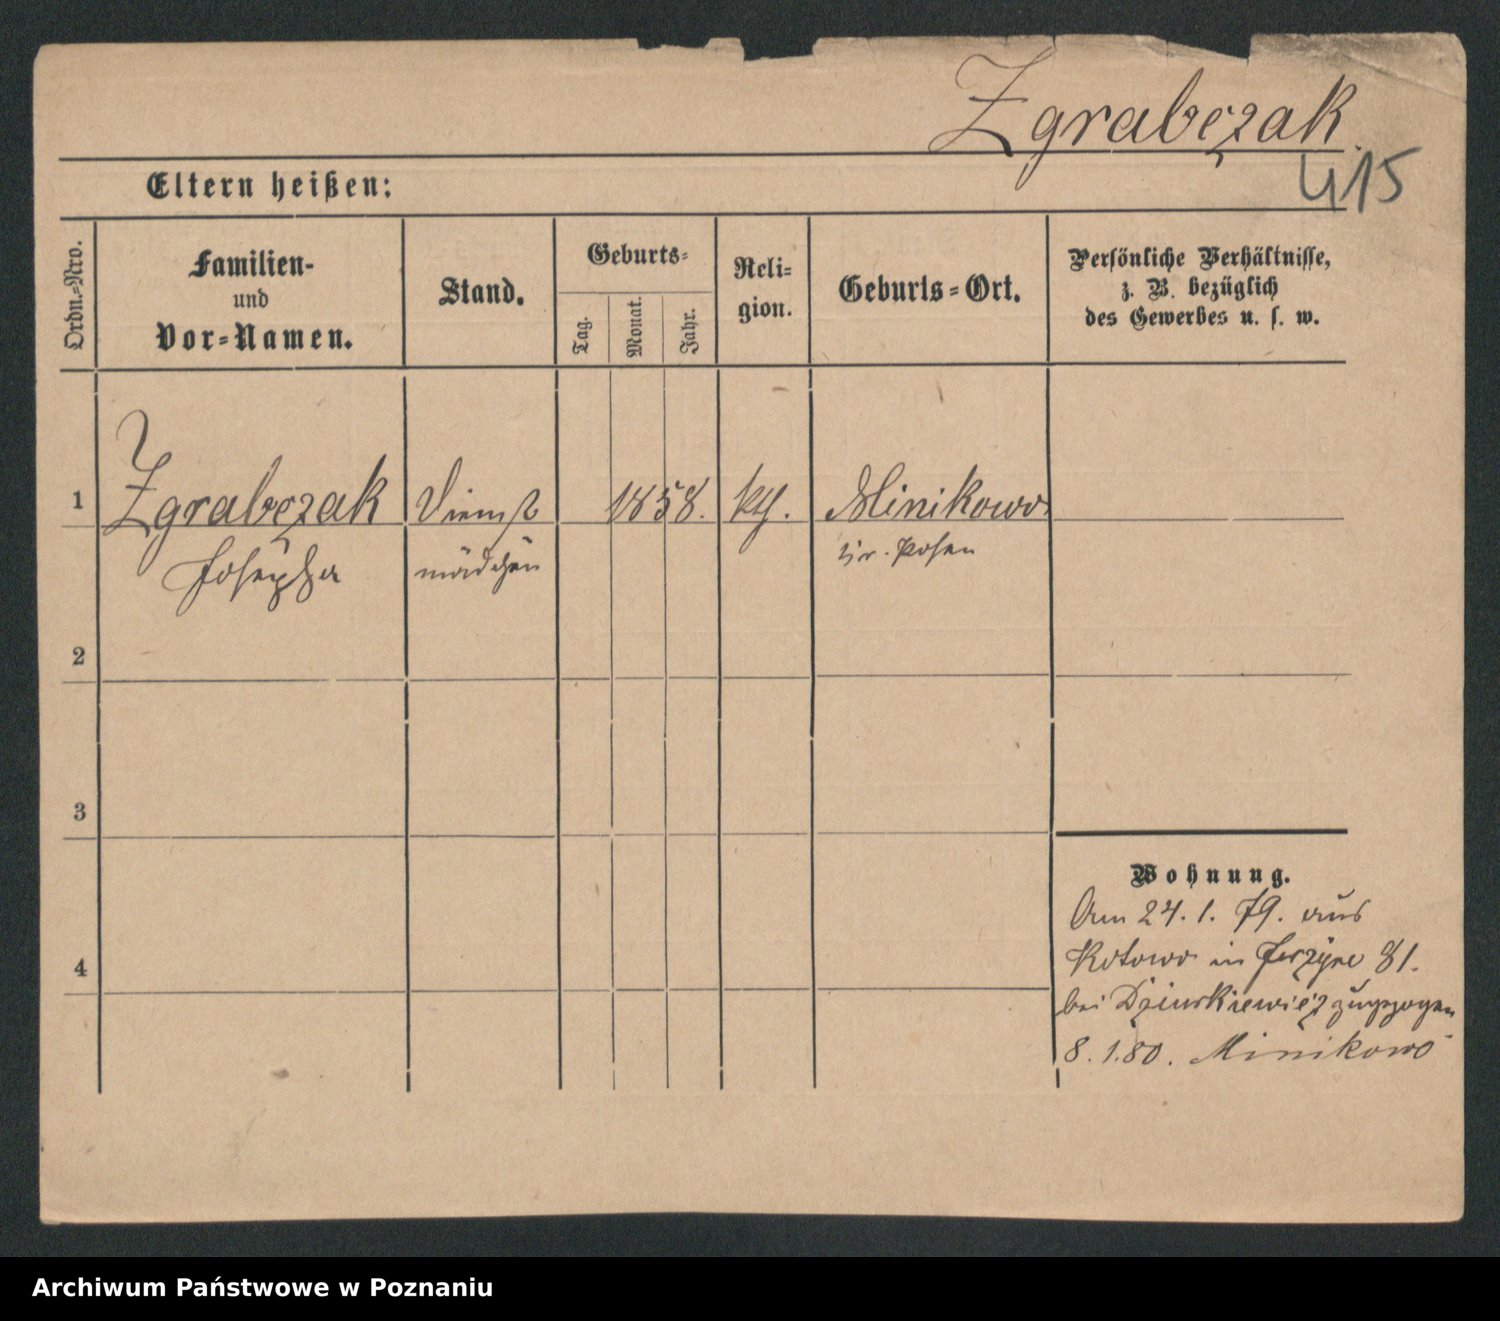 Zgrabczak
415
Eltern heißen:
Ordn.-Nro.
Familien-
und
Vor-Namen.
Stand.
Geburts-
Tag.
Monat.
Jahr.
Reli-
gion.
Geburts-Ort.
Persönliche Verhältnisse,
z. B. bezüglich
des Gewerbes u. s. w.
1
Zgrabczak
Josepha
Dienst
mädchen
1858.
kth.
Minikowo
Kr. Posen
2
3
4
Wohnung.
Am 24. 1. 79. aus
Kotowo in Jerzyce 81.
bei Dziurkiewicz zugezogen
8. 1. 80. Minikowo
Archiwum Państwowe w Poznaniu